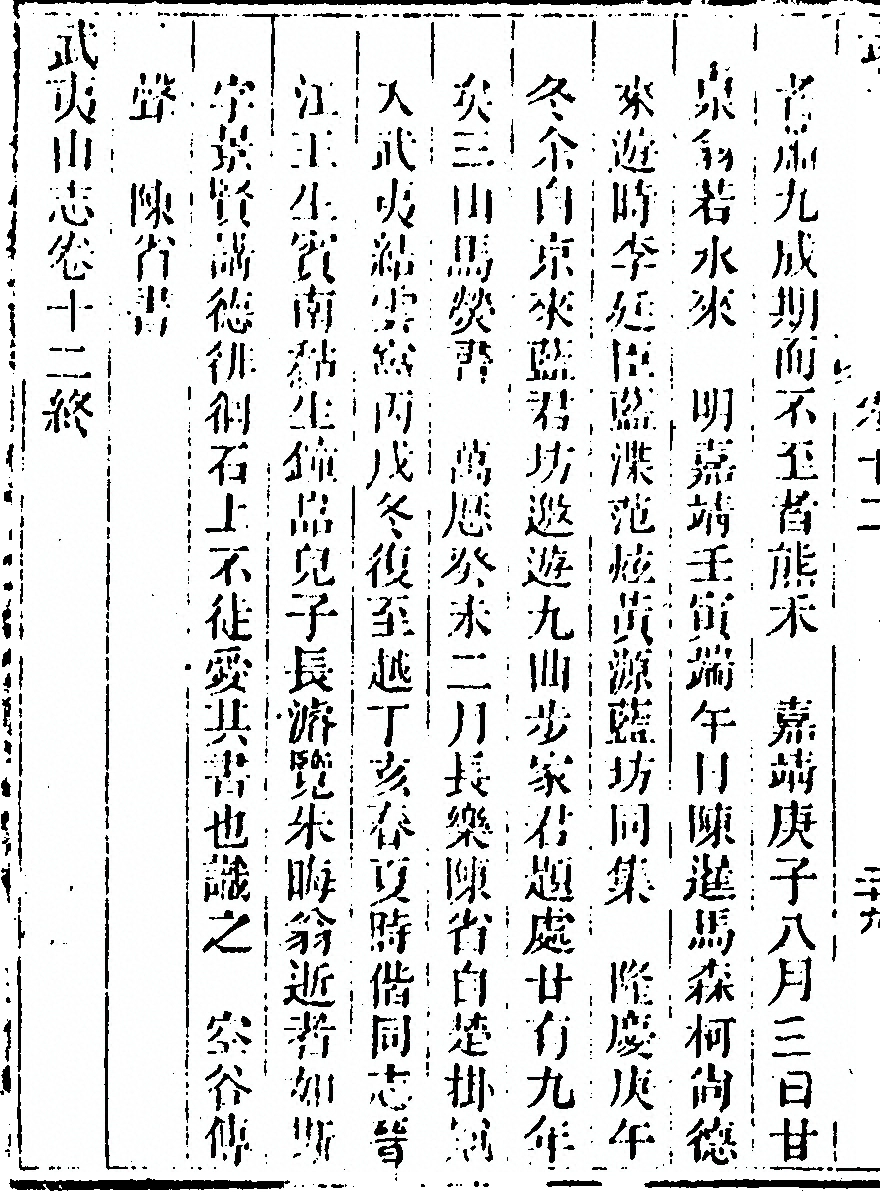 者蕭九成期而不至者熊禾　嘉靖庚子八月三日甘
泉翁若水來　明嘉靖壬寅端午日陳暹馬森柯尚德
來遊時李廷臣藍渫范炫黃源藍坊同集　隆慶庚午
冬余自京來藍君坊邀遊九曲步家君題處廿有九年
矣三山馬熒書　萬歷癸未二月長樂陳省自楚掛冠
入武夷結雲窩丙戌冬復至越丁亥春夏時偕同志晉
江王生賓南黏生鐘品兒子長濬覽朱晦翁逝者如斯
字景賢誦德徘徊石上不徒愛其書也識之　空谷傳
聲　陳省書
武夷山志卷十二終
卷十二
二十九